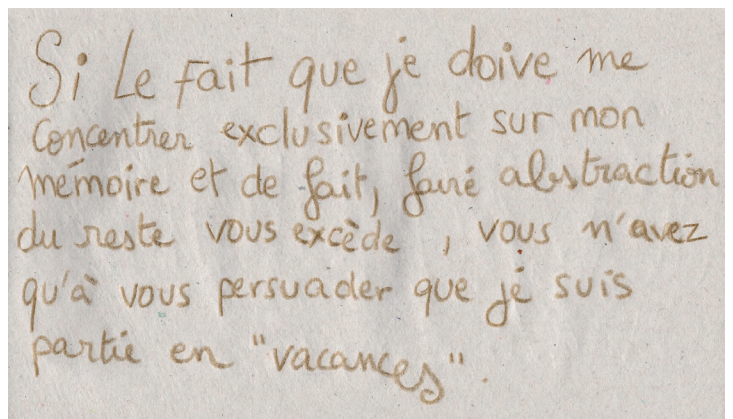 Si Le fait que je doive me
concentrer exclusivement sur mon
mémoire et de fait, faire abstraction
du reste vous excède , vous n'avez
qu'à vous persuader que je suis
partie en "vacances".